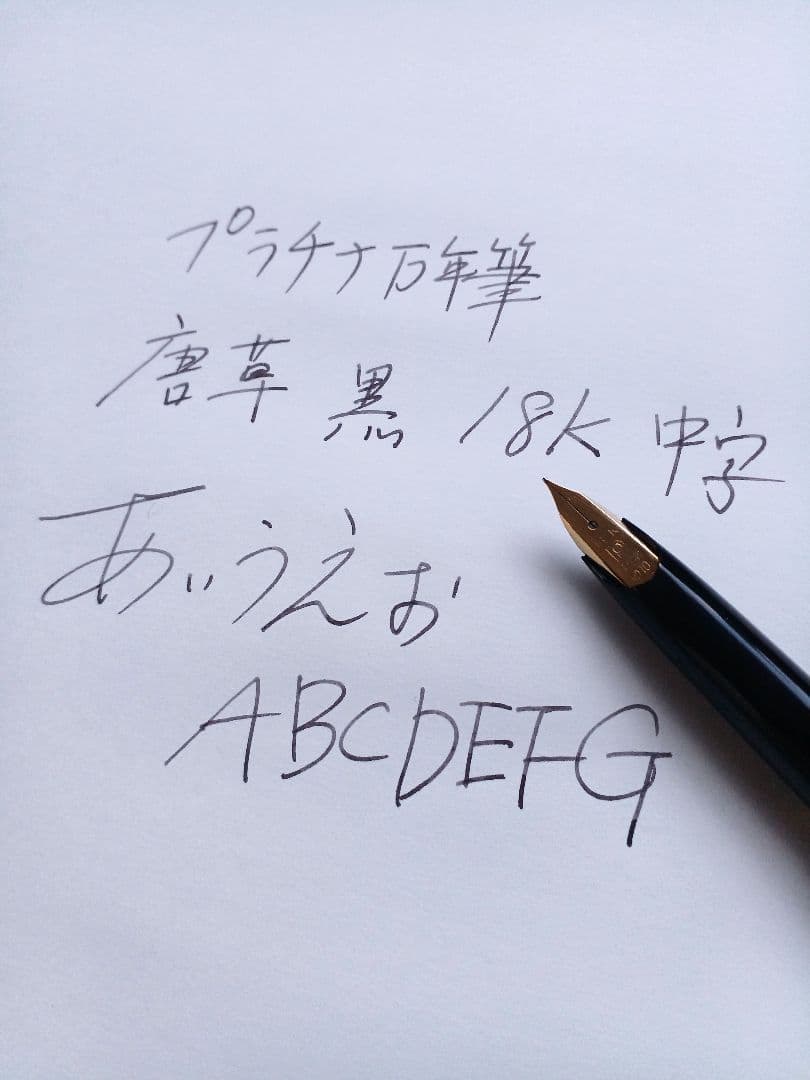 プラチナ万年筆
唐草 黒 18K 中字
あいうえお
ABCDEFG